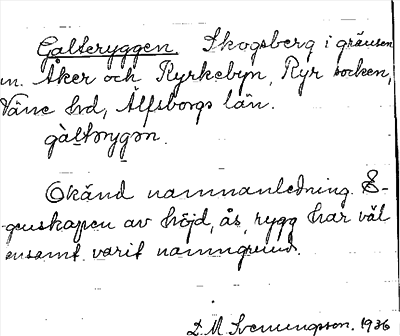 Galteryggen. Skogsberg i gränsen
m. Åker och Kyrkebyn, Ryr socken,
Väne hd, Älfsborgs län.
gàltərygən.
Okänd namnanledning. E-
genskapen av höjd, ås, rygg har väl
ensamt varit namngrund.
D. M. Svenungsson. 1936